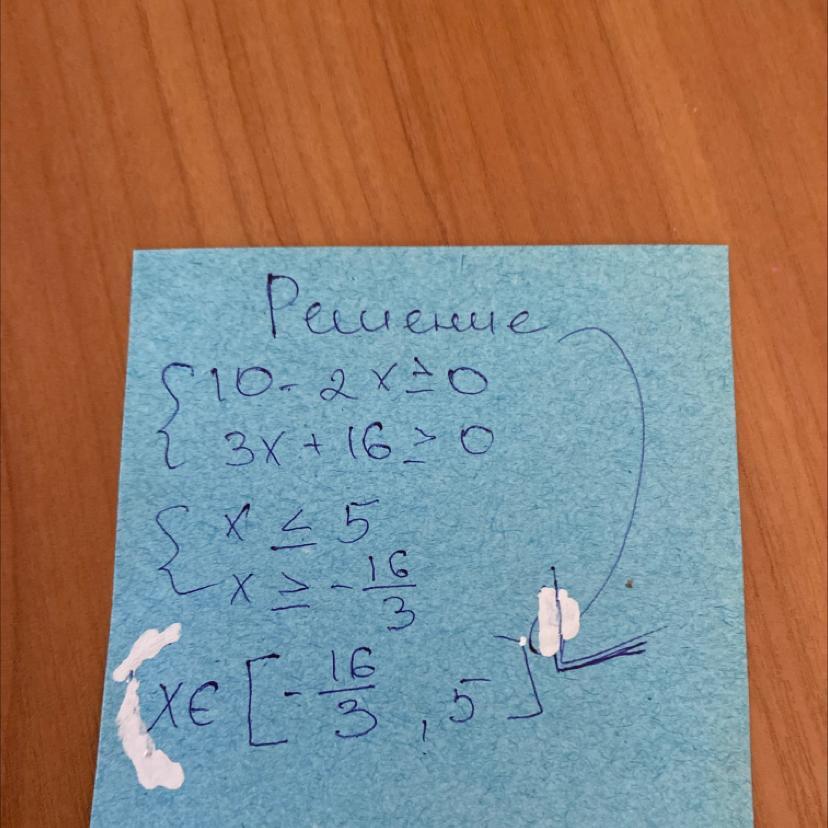 Решение
10-2x≥0
3x+16≥0
x≤5
x≥-16/3
x∈[-16/3,5]